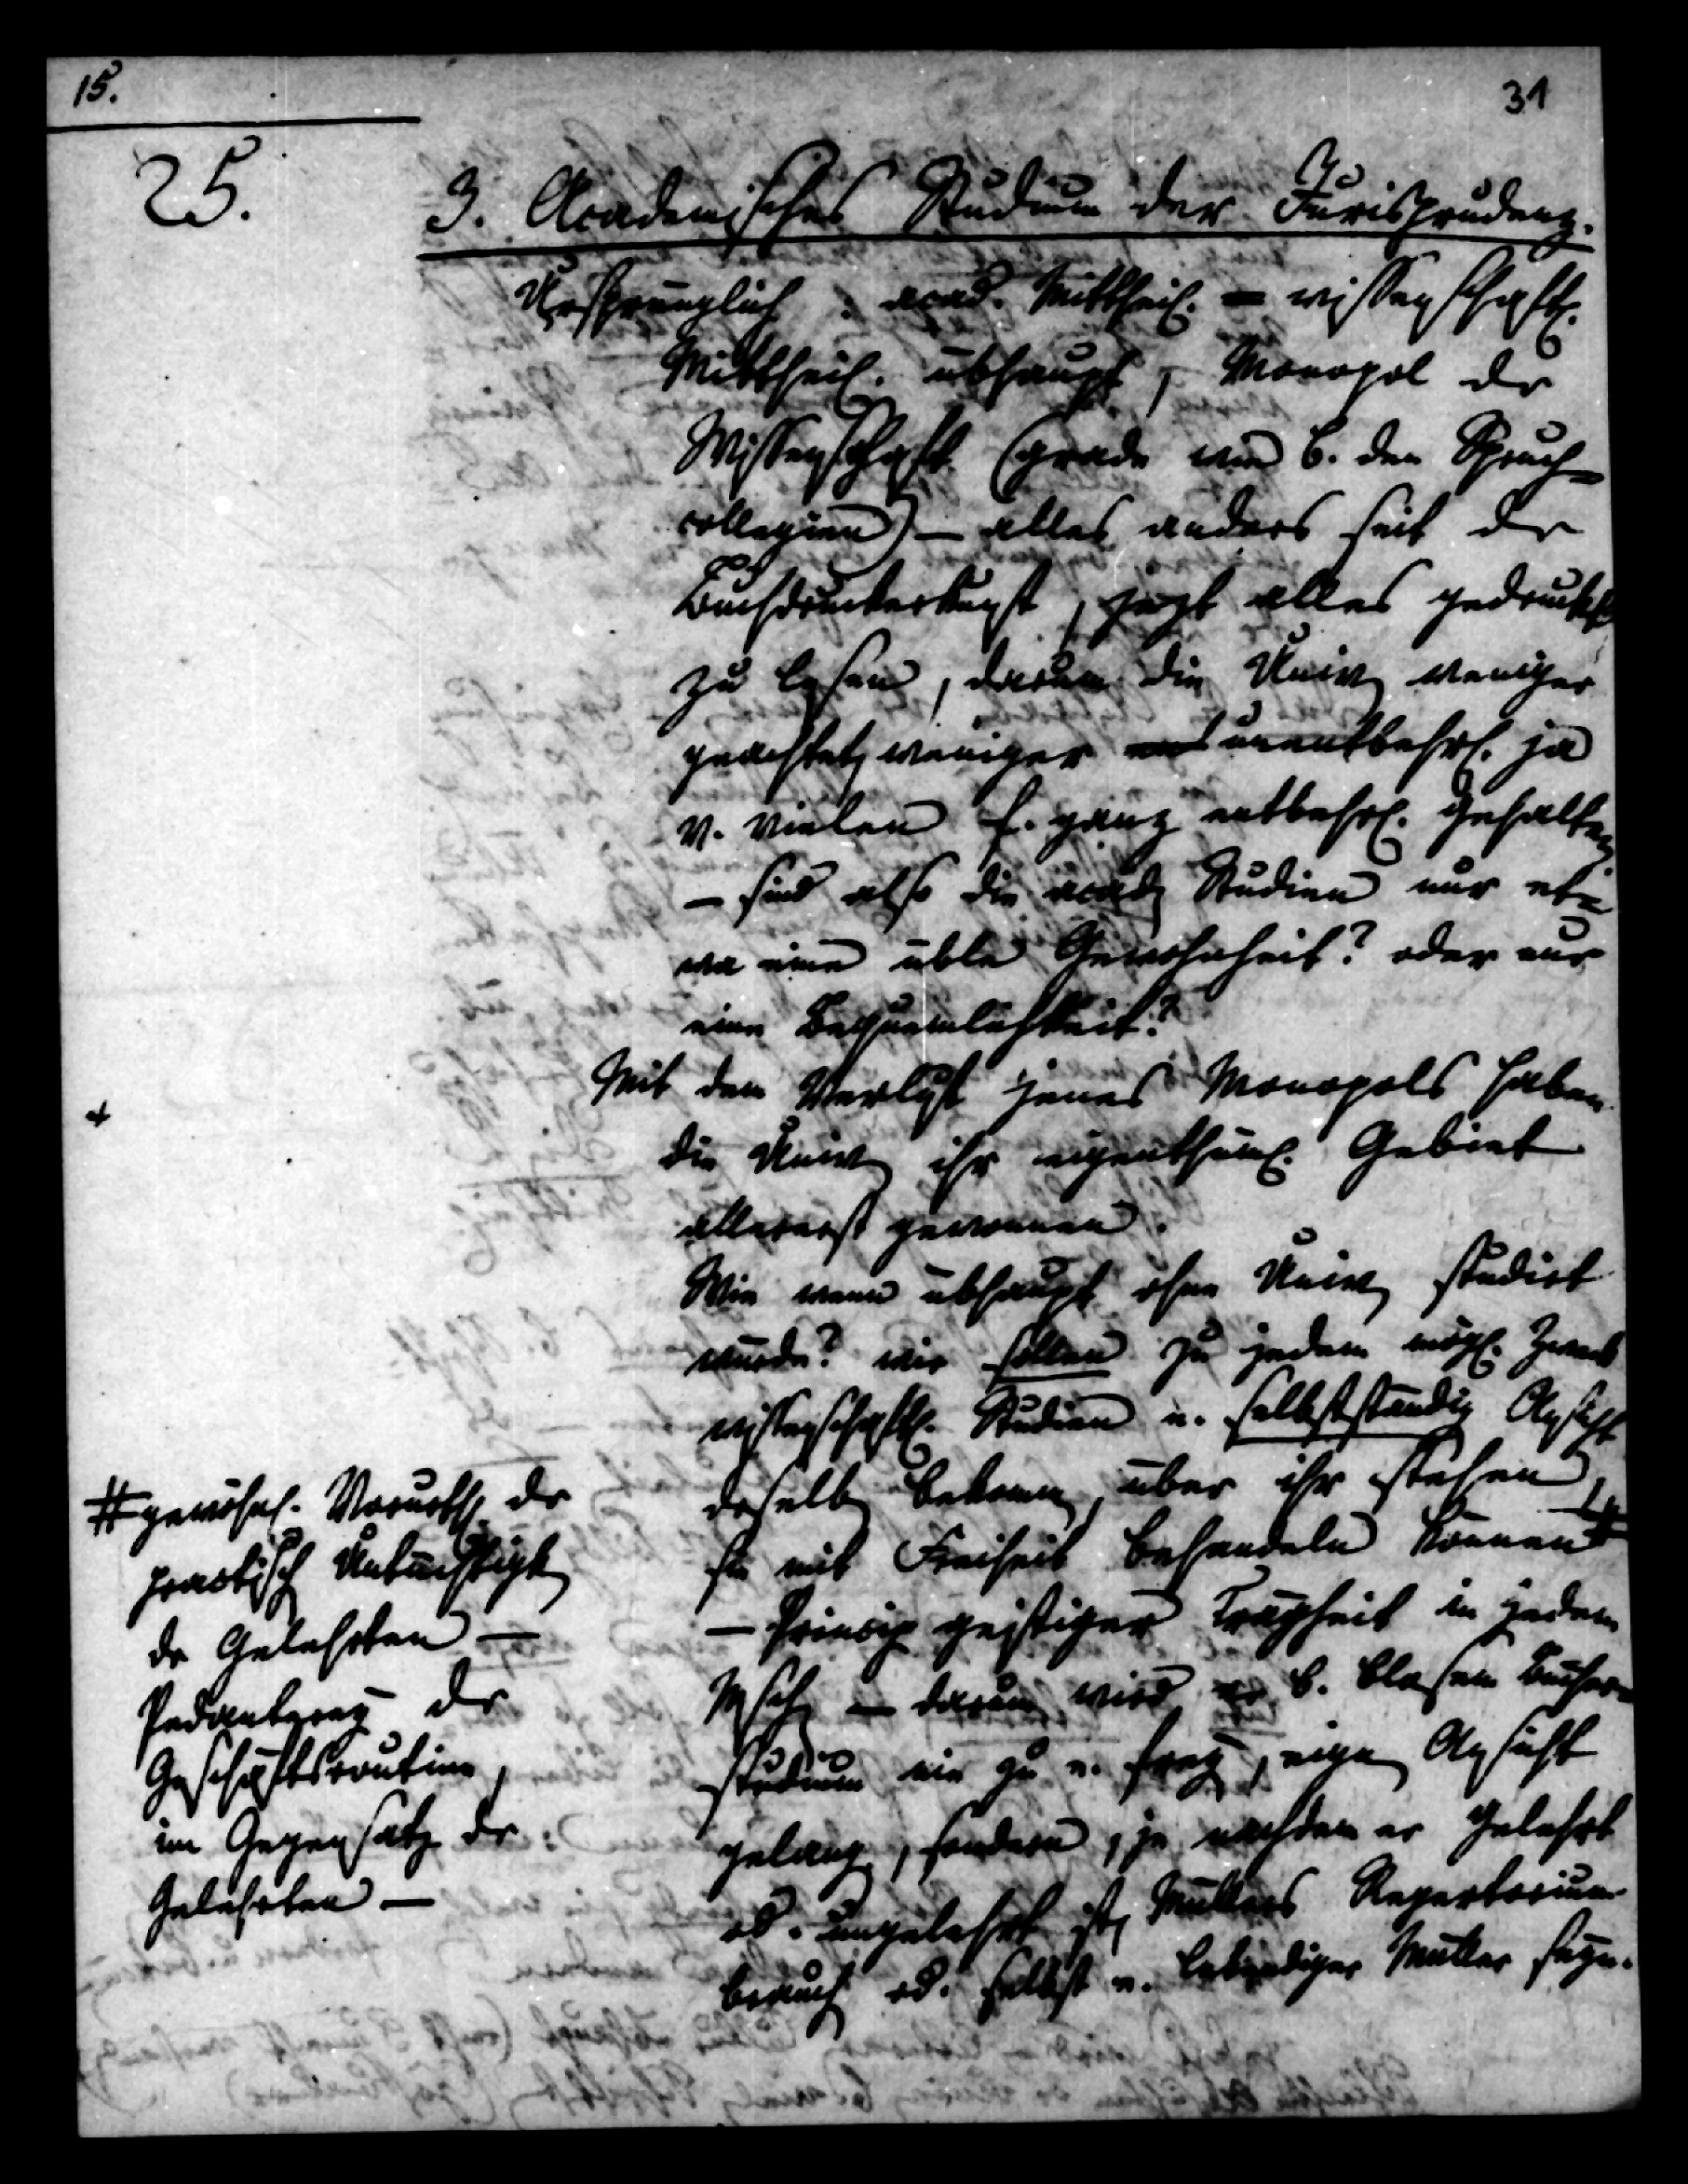 15.
31
25.
3. Academisches Studium der Jurisprudenz.
Ursprünglich: acad. Mittheil. = wissenschaftl.
Mittheil. übhaupt, Monopol der
Wissenschaft (grade wie b. den Spruch-
collegien) — alles anders seit der
Buchdruckerkunst, jezt alles gedruckt
zu lesen, darum die Univ. weniger
geachtet, weniger unentbehrl. ja
v. vielen f. ganz entbehrl. gehalten
— sind also die acad. Studien nur et-
wa eine üble Gewohnheit? oder nur
eine Bequemlichkeit?
Mit dem Verlust jenes Monopols haben
die Univ. ihr eigenthüml. Gebiet
allererst gewonnen.
Wie wenn übhaupt ohne Univ. studirt
würde? wir sollen zu jedem mögl. Zweck
wissenschaftl. Studien u. selbstständig Ansicht
desselb. bekomm., über ihr stehen,
sie mit Freiheit behandeln können #
— Princip geistiger Trägheit in jedem
Msch. — darum wird er b. blosem Bücher-
studium nie zu e. frey, eigen Ansicht
gelang, sondern, je nachdem er gelehrt
od. ungelehrt ist, Müllers Repertorium
brauch od. selbst e. lebendiger Müller seyn.
# gewöhnl. Vorurth. der
practisch Untüchtigk.
der Gelehrten —
Pedanterey der
Geschäftsroutine,
im Gegensatz der
Gelehrten —